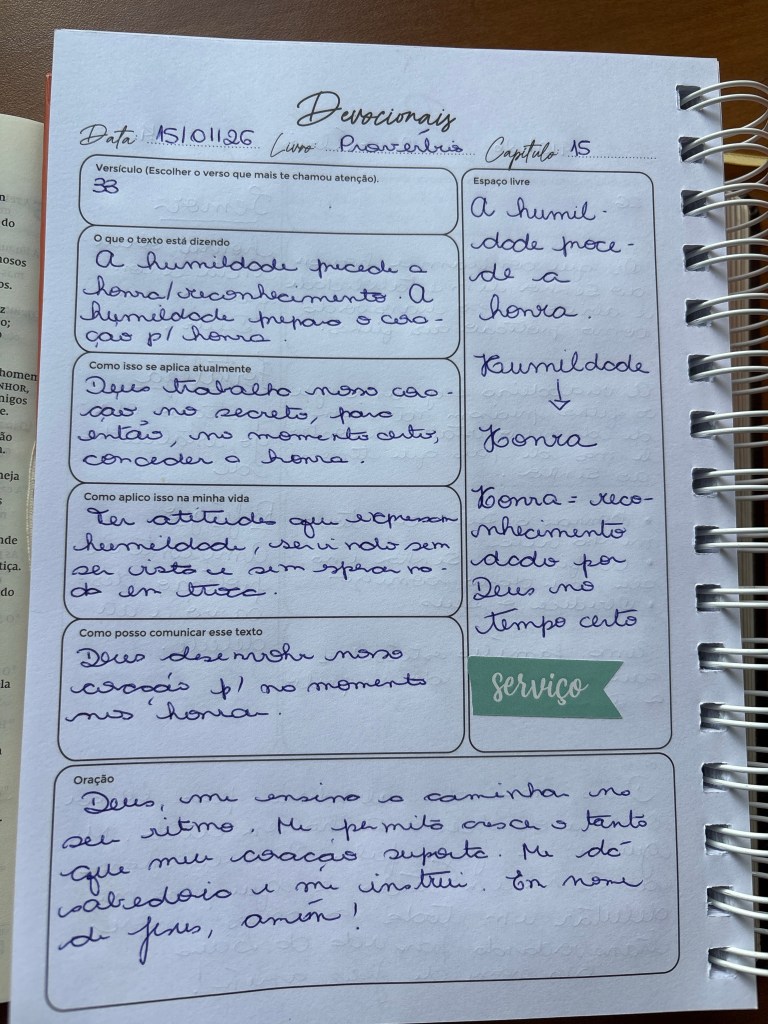 Devocionais
Data 15/01/26 Livro Provérbio Capítulo 15
Versículo (Escolher o verso que mais te chamou atenção).
33
O que o texto está dizendo
A humildade precede a
honra/reconhecimento. A
humildade prepara o cora-
ção p/ honra.
Como isso se aplica atualmente
Deus trabalha nosso cora-
ção, no secreto, para
então, no momento certo,
conceder a honra.
Como aplico isso na minha vida
Ter atitudes que expressam
humildade, servindo sem
ser visto e sem esperar na-
da em troca.
Como posso comunicar esse texto
Deus desenvolve nosso
coração p/ no momento
nos honrar.
Espaço livre
A humil-
dade proce-
de a
honra.
Humildade
↓
Honra
Honra = reco-
nhecimento
dado por
Deus no
tempo certo
serviço
Oração
Deus, me ensina a caminhar no
seu ritmo. Me permita crescer o tanto
que meu coração suporta. Me dá
sabedoria e me instrui. Em nome
de Jesus, amém!
do
nosos
os.
z
o;
homem
NHOR,
nigos
e.
ão
n.
neja
s
nde
tiça.
do
la